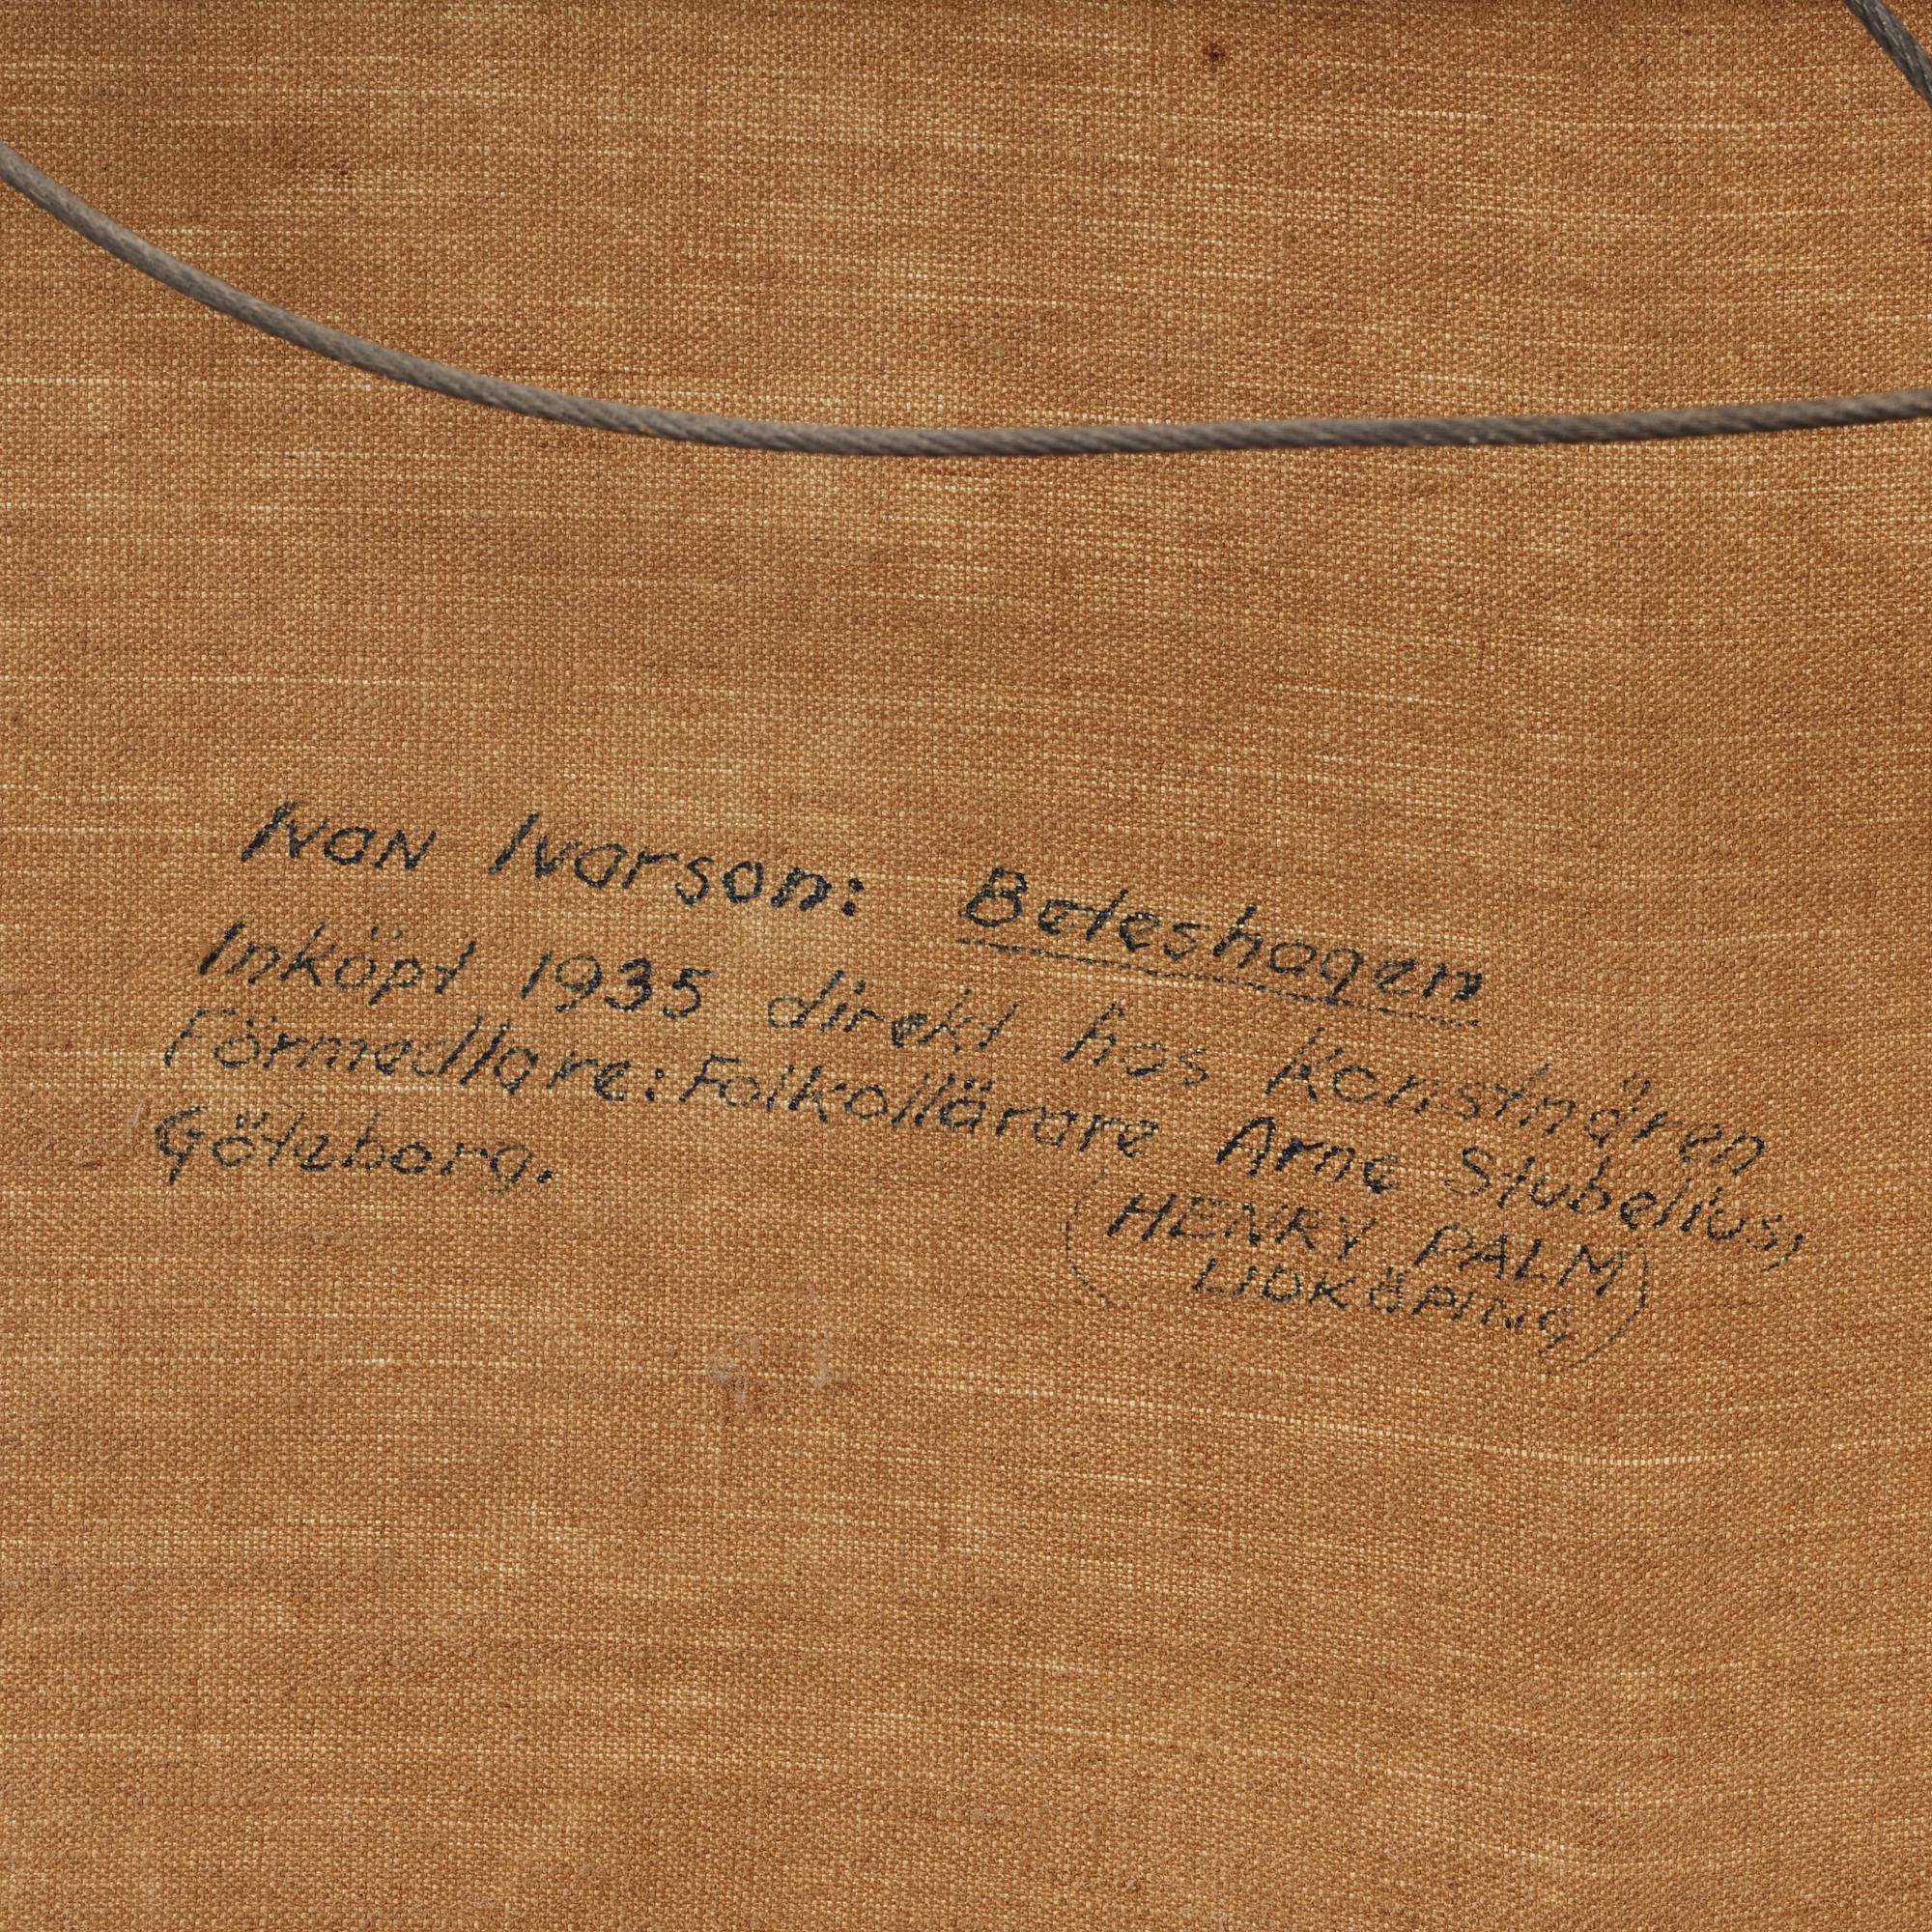 Ivan Ivarson: Beteshagen
Inköpt 1935 direkt hos konstnären
Förmedlare: Folkollärare Arne Stubelius,
Göteborg.
(HENRY PALM
LIDKÖPING)